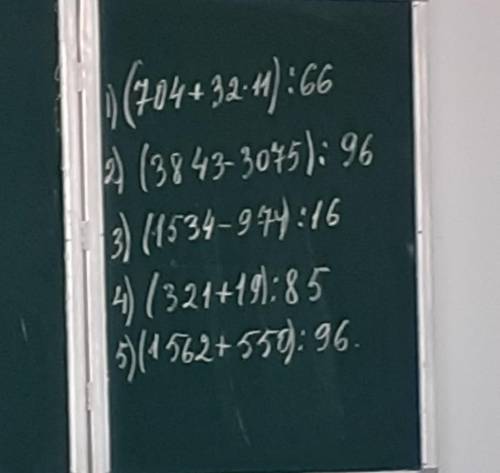 1) (704+32·11):66
2) (3843-3075): 96
3) (1534-974):16
4) (321+19):85
5) (1562+550):96.